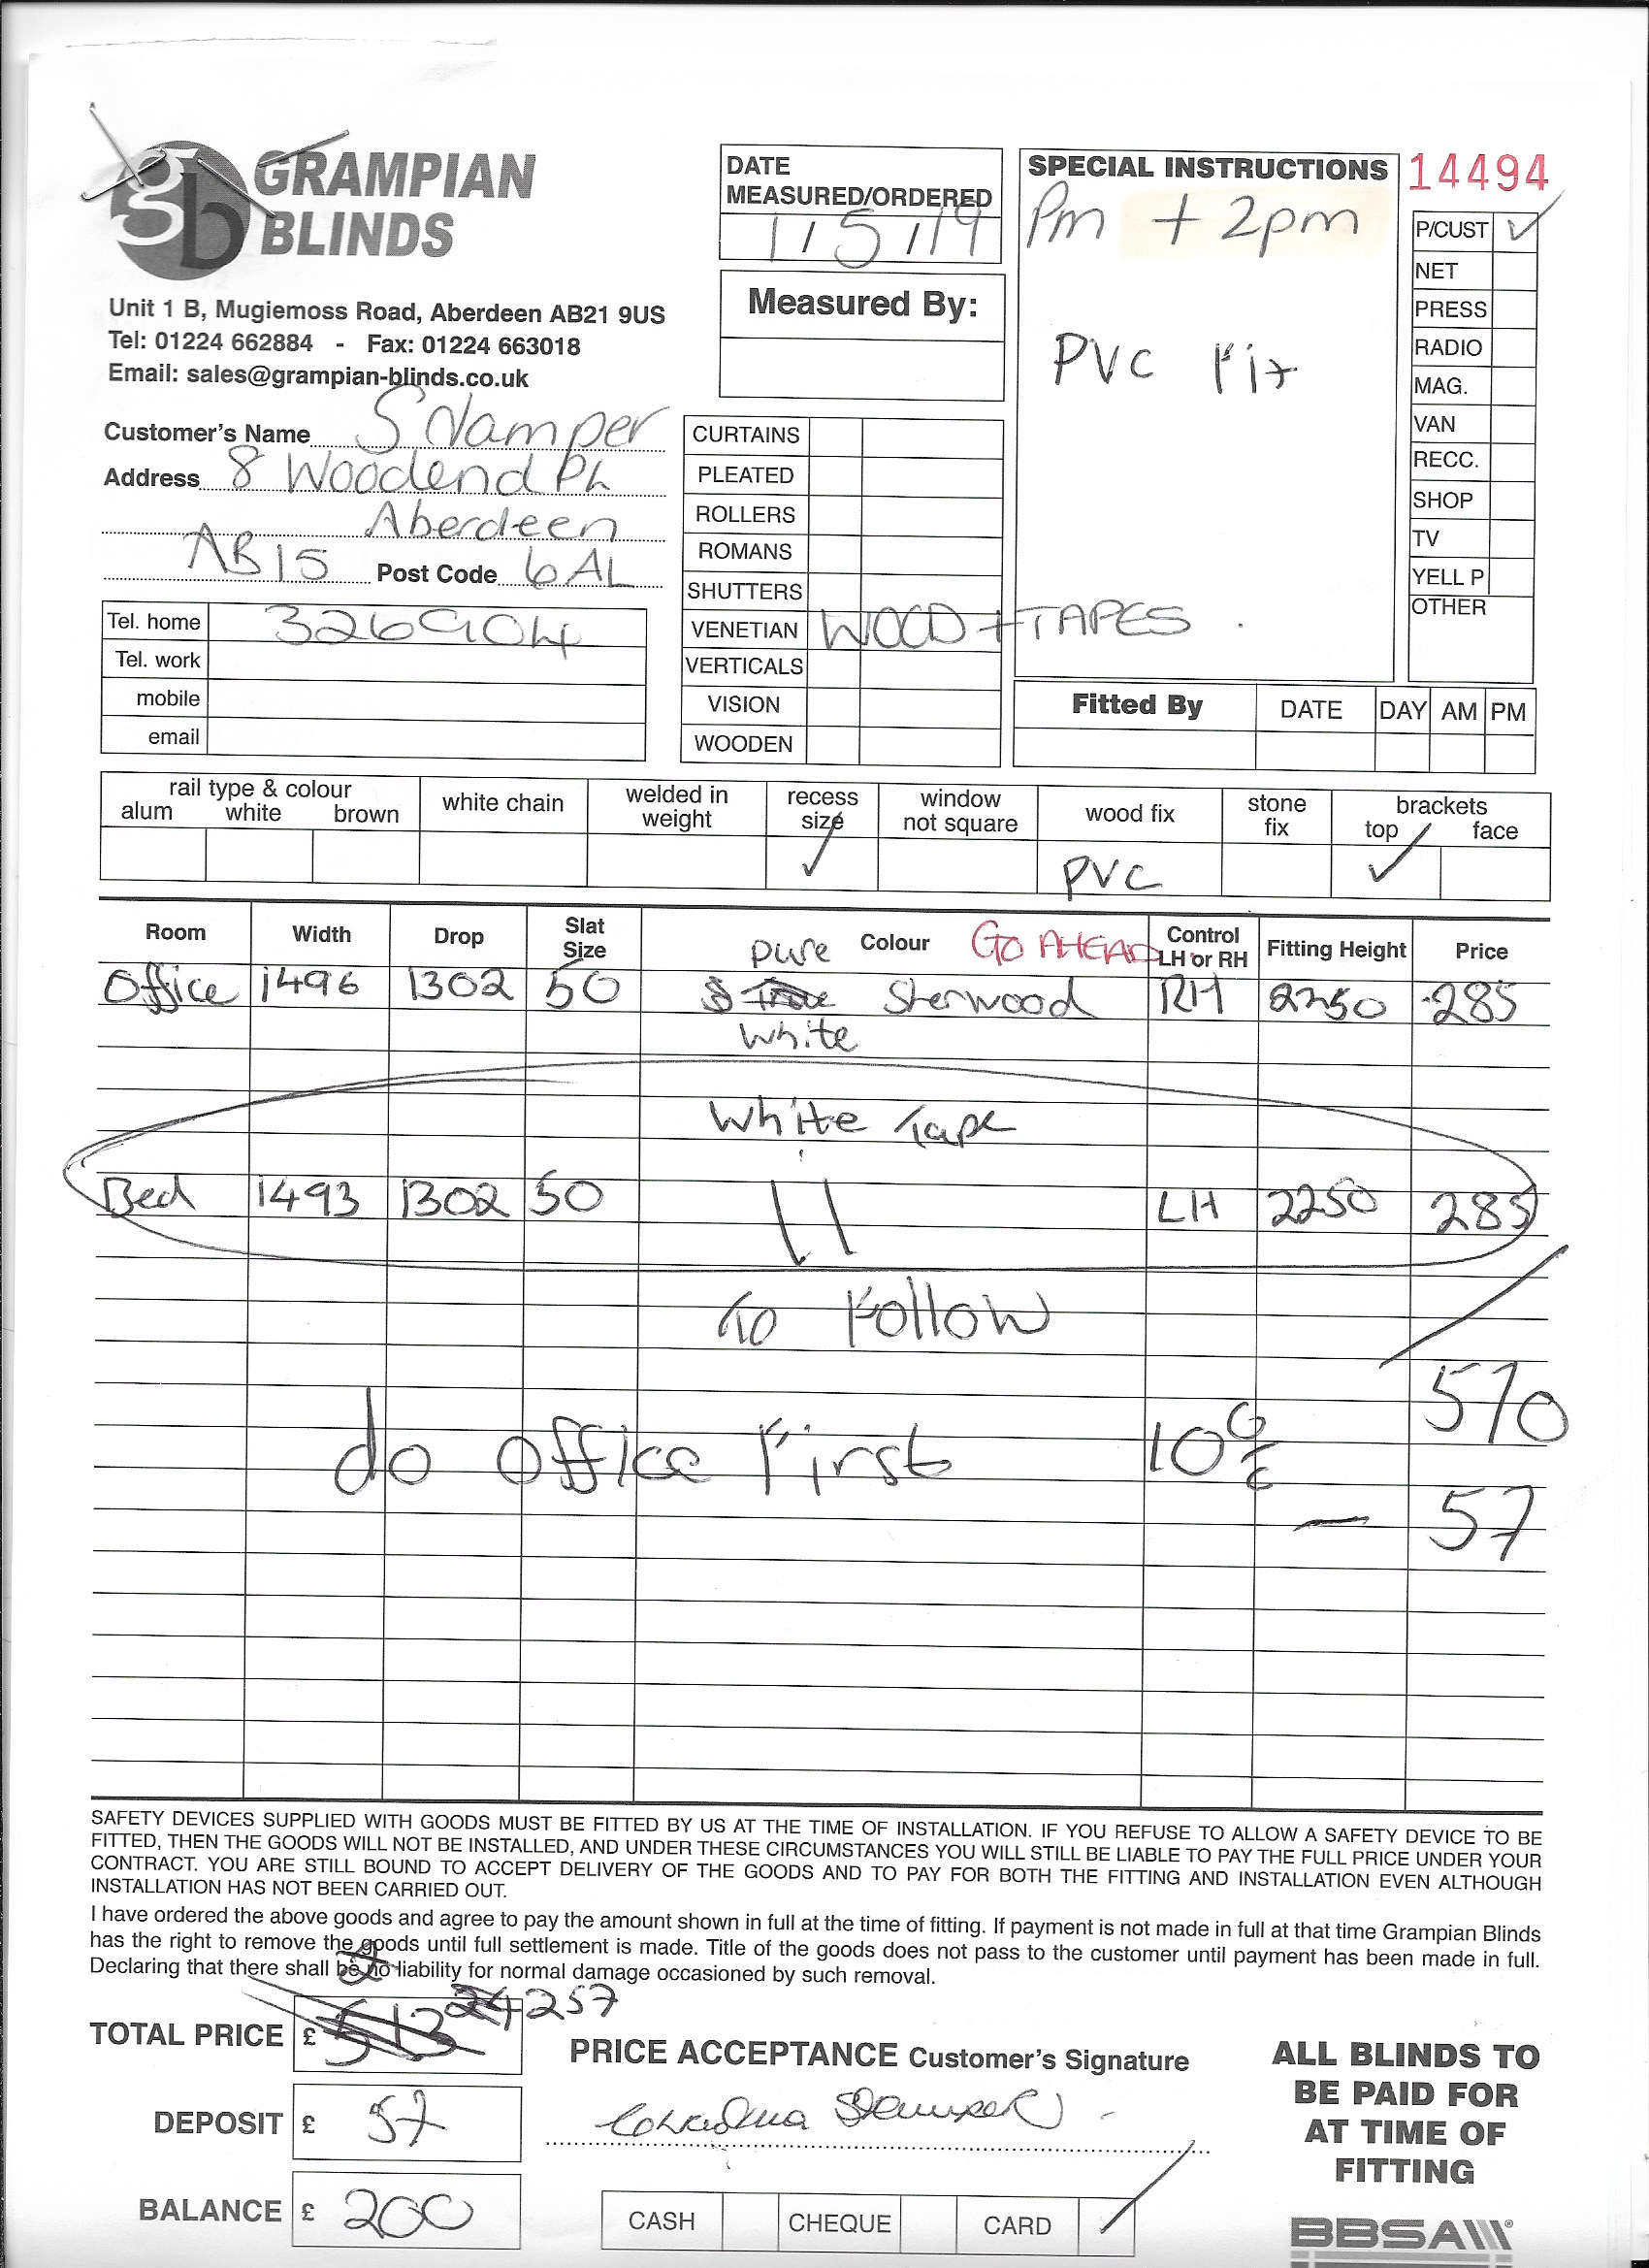 gb GRAMPIAN BLINDS
Unit 1 B, Mugiemoss Road, Aberdeen AB21 9US
Tel: 01224 662884 - Fax: 01224 663018
Email: sales@grampian-blinds.co.uk
DATE MEASURED/ORDERED
1/5/19
Measured By:
SPECIAL INSTRUCTIONS
Pm + 2pm
PVC Fix
14494
P/CUST ✓
NET
PRESS
RADIO
MAG.
VAN
RECC.
SHOP
TV
YELL P
OTHER
Customer's Name Stamper
Address 8 Woodend Pl
Aberdeen
AB15 Post Code 6AL
Tel. home 326904
Tel. work
mobile
email
CURTAINS
PLEATED
ROLLERS
ROMANS
SHUTTERS
VENETIAN WOOD + TAPES
VERTICALS
VISION
WOODEN
Fitted By DATE DAY AM PM
rail type & colour
alum white brown
white chain
welded in weight
recess size ✓
window not square
wood fix PVC
stone fix
brackets
top ✓ face
Room Width Drop Slat Size Colour GO AHEAD Control LH or RH Fitting Height Price
pure
Office 1496 1302 50 Sherwood RH 2250 285
White
White Tape
Bed 1493 1302 50 LH 2250 285
To Follow
570
do office First 10%
- 57
SAFETY DEVICES SUPPLIED WITH GOODS MUST BE FITTED BY US AT THE TIME OF INSTALLATION. IF YOU REFUSE TO ALLOW A SAFETY DEVICE TO BE
FITTED, THEN THE GOODS WILL NOT BE INSTALLED, AND UNDER THESE CIRCUMSTANCES YOU WILL STILL BE LIABLE TO PAY THE FULL PRICE UNDER YOUR
CONTRACT. YOU ARE STILL BOUND TO ACCEPT DELIVERY OF THE GOODS AND TO PAY FOR BOTH THE FITTING AND INSTALLATION EVEN ALTHOUGH
INSTALLATION HAS NOT BEEN CARRIED OUT.
I have ordered the above goods and agree to pay the amount shown in full at the time of fitting. If payment is not made in full at that time Grampian Blinds
has the right to remove the goods until full settlement is made. Title of the goods does not pass to the customer until payment has been made in full.
Declaring that there shall be no liability for normal damage occasioned by such removal.
TOTAL PRICE £ 513 257
DEPOSIT £ 57
BALANCE £ 200
PRICE ACCEPTANCE Customer's Signature
CASH CHEQUE CARD ✓
ALL BLINDS TO
BE PAID FOR
AT TIME OF
FITTING
BBSA